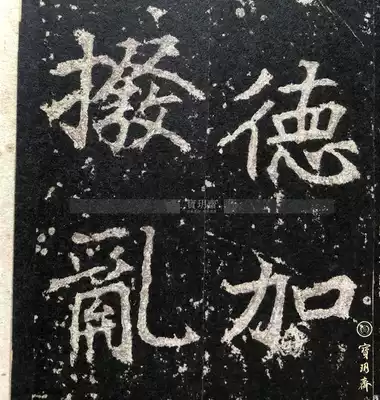 德加
撥亂
寶玥齋
寶玥齋